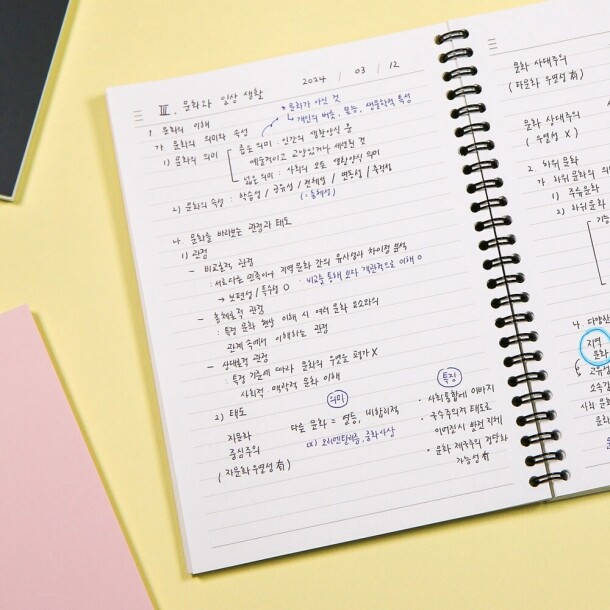 2024 / 03 / 12
Ⅲ. 문화와 일상 생활
* 문화가 아닌 것
↳ 개인의 버릇, 본능, 생물학적 특성
1. 문화의 이해
가. 문화의 의미와 속성
1) 문화의 의미
좁은 의미 : 인간의 생활양식 中
예술적이고 교양있거나 세련된 것
넓은 의미 : 사회의 모든 생활양식 의미
2) 문화의 속성 : 학습성 / 공유성 / 전체성 / 변동성 / 축적성
(=총체성)
나. 문화를 바라보는 관점과 태도
1) 관점
- 비교론적 관점
: 서로 다른 민족이나 지역 문화 간의 유사성과 차이점 분석
→ 보편성 / 특수성 O · 비교를 통해 보다 객관적으로 이해 O
- 총체론적 관점
: 특정 문화 현상 이해 시 여러 문화 요소와의
관계 속에서 이해하는 관점
- 상대론적 관점
: 특정 기준에 따라 문화의 우열을 평가 X
사회적·맥락적 문화 이해
2) 태도
의미
특징
자문화
중심주의
(자문화 우월성 有)
다른 문화 = 열등, 비합리적
ex) 오리엔탈리즘, 중화사상
· 사회통합에 이바지
· 국수주의적 태도로
이어질시 발전 저해
· 문화 제국주의 정당화
가능성 有
문화 사대주의
(타문화 우월성 有)
문화 상대주의
(우열성 X)
2. 하위문화
가. 하위문화의 의
1) 주류문화
2) 하위문화
기능
나. 다양한
지역
문화
고유성
소속감
사회 문화
문화